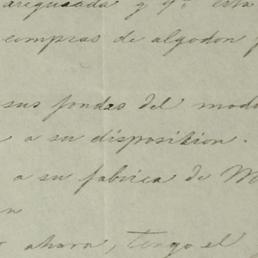 asegurada y qe. esta
compras de algodon
sus fondos del modo
a su disposition.
a su fabrica de M
n
ahora, tengo el